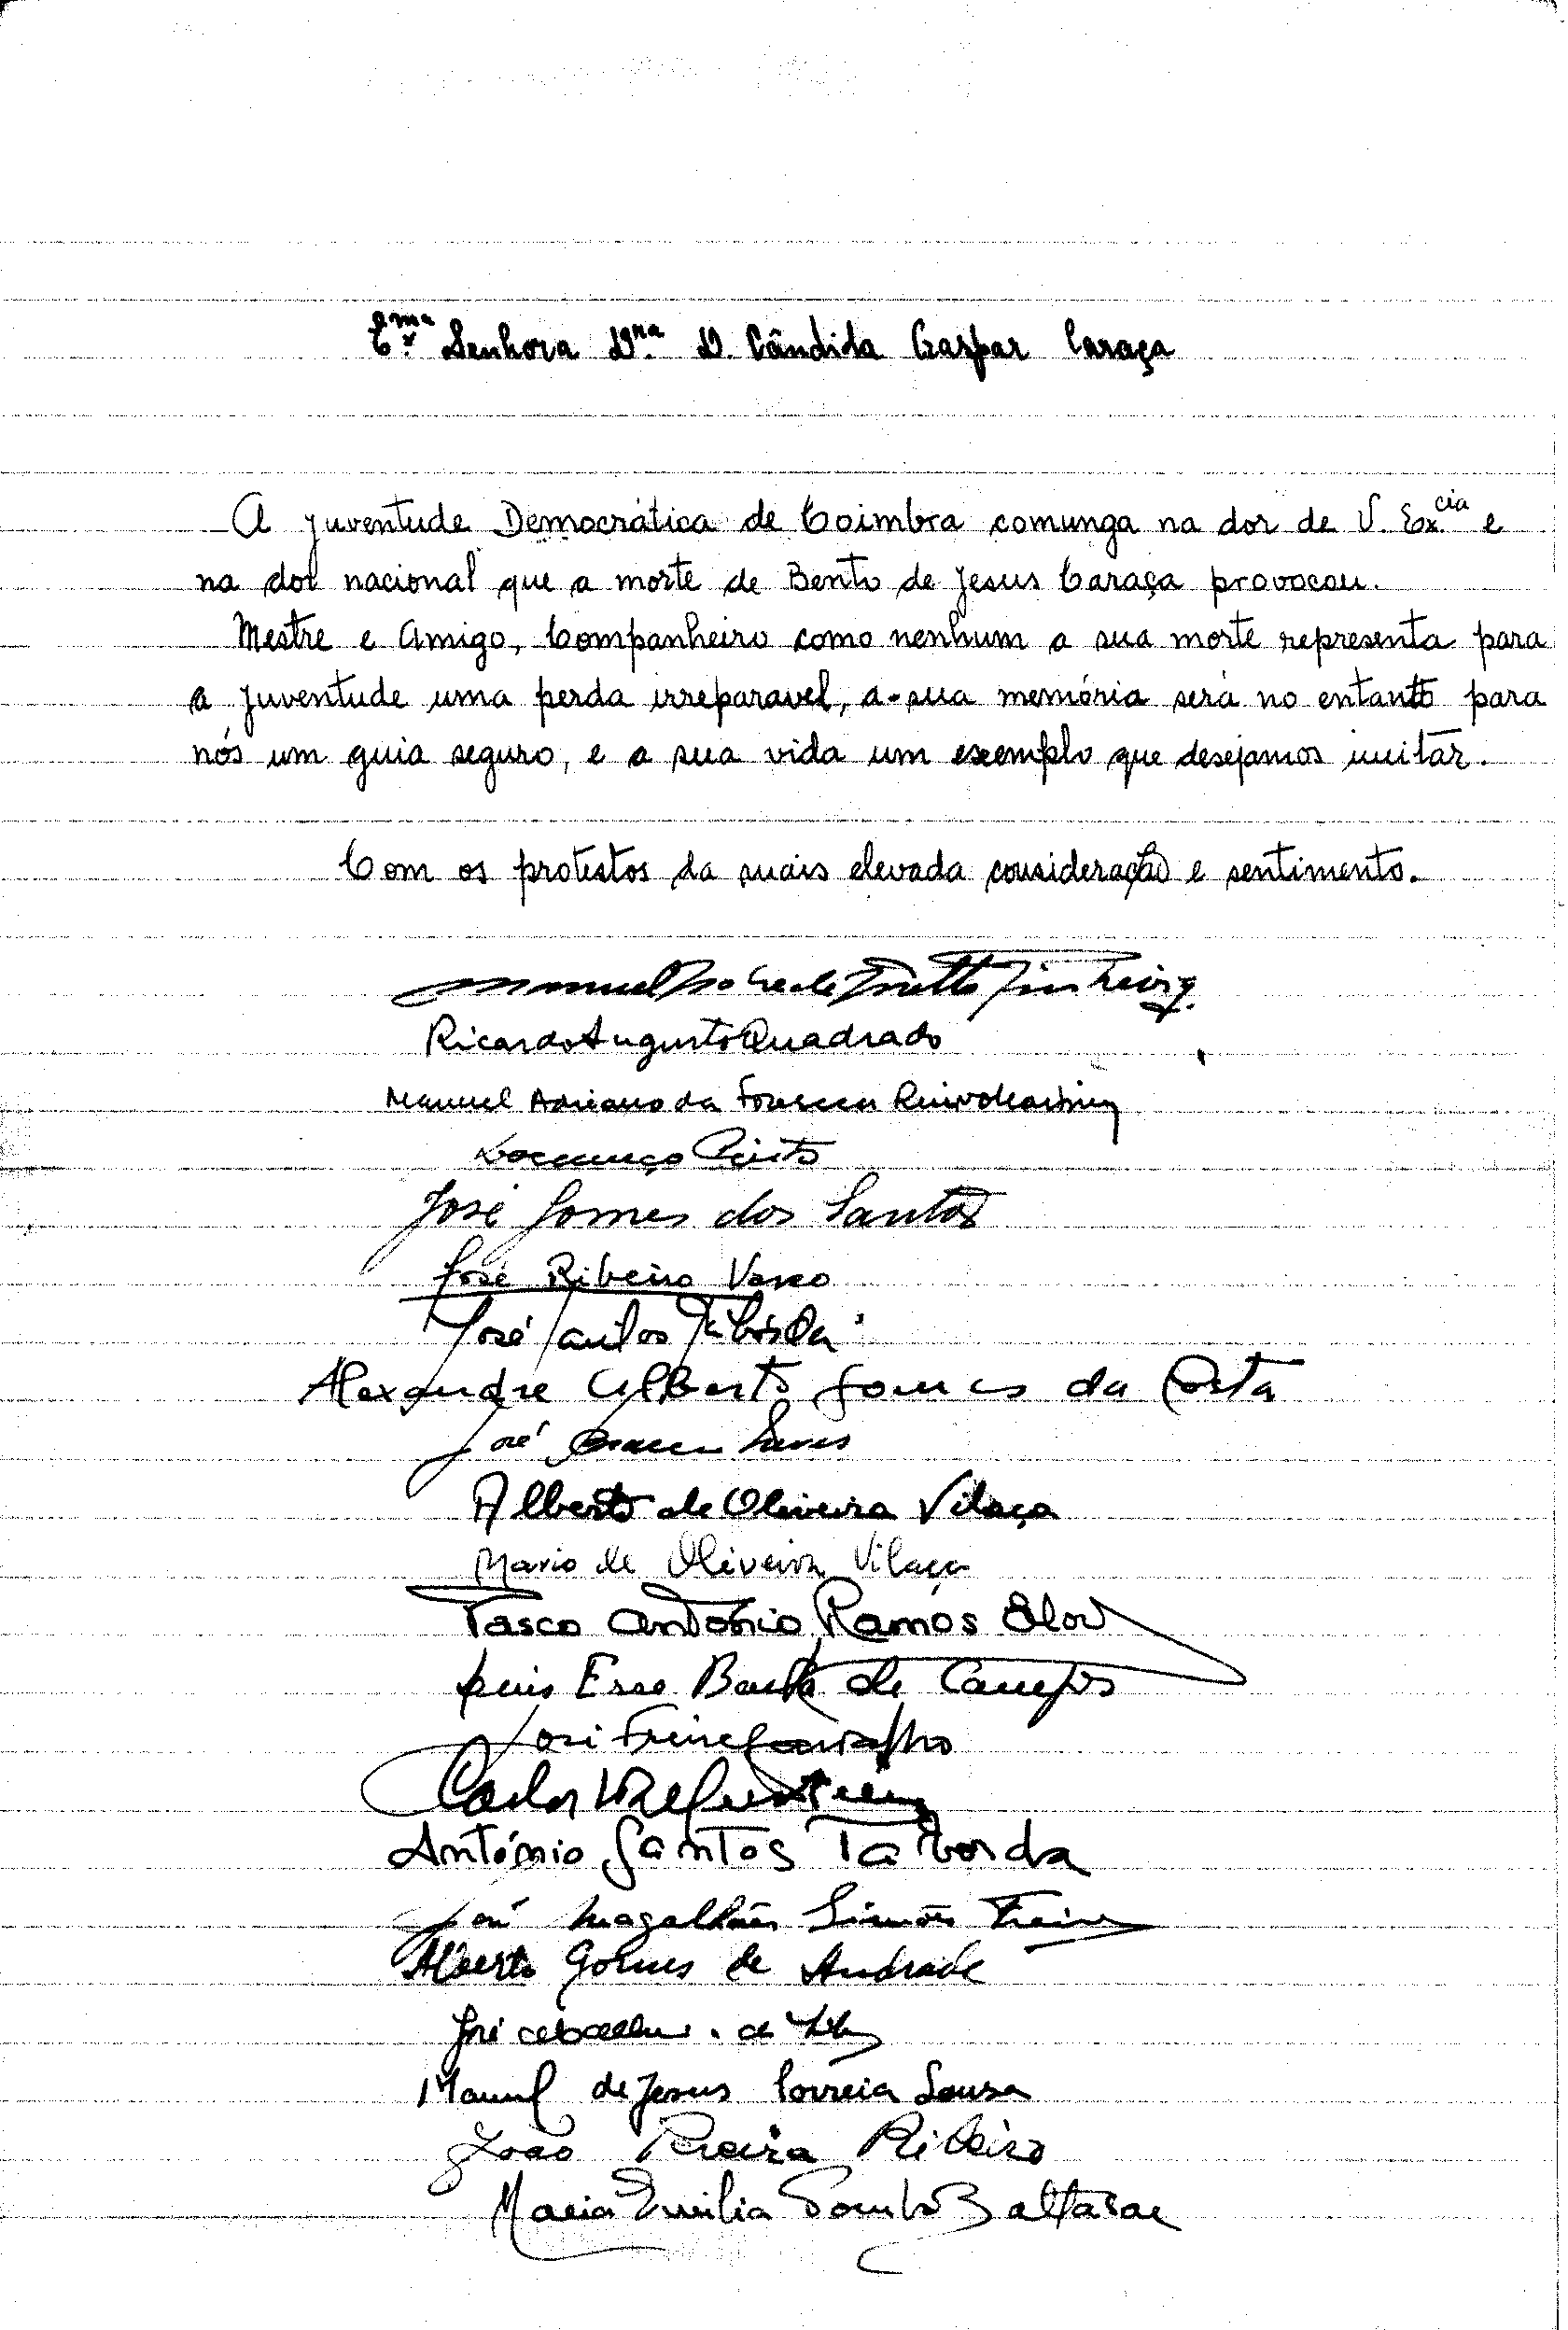 Exma Senhora Dna D. Cândida Gaspar Caraça
A juventude Democrática de Coimbra comunga na dor de V. Ex.cia e
na dor nacional que a morte de Bento de Jesus Caraça provocou.
Mestre e Amigo, Companheiro como nenhum a sua morte representa para
a juventude uma perda irreparavel, a sua memória será no entanto para
nós um guia seguro, e a sua vida um exemplo que desejamos imitar.
Com os protestos da mais elevada consideração e sentimento.
Manuel
Ricardo Augusto Quadrado
Manuel Adriano da Fonseca
Lourenço
José Gomes dos Santos
José Ribeiro Vasco
José Santos Taborda
Alexandre Alberto Gomes da Costa
José
Alberto de Oliveira Vilaça
Mario de Oliveira Vilaça
Vasco António Ramos
Luis de Campos
José Freire
Carlos
António Santos Taborda
José Magalhães Simões Freire
Alberto Gomes de Andrade
José
Manuel de Jesus Correia Sousa
João Pereira Ribeiro
Maria Emilia Baltasar